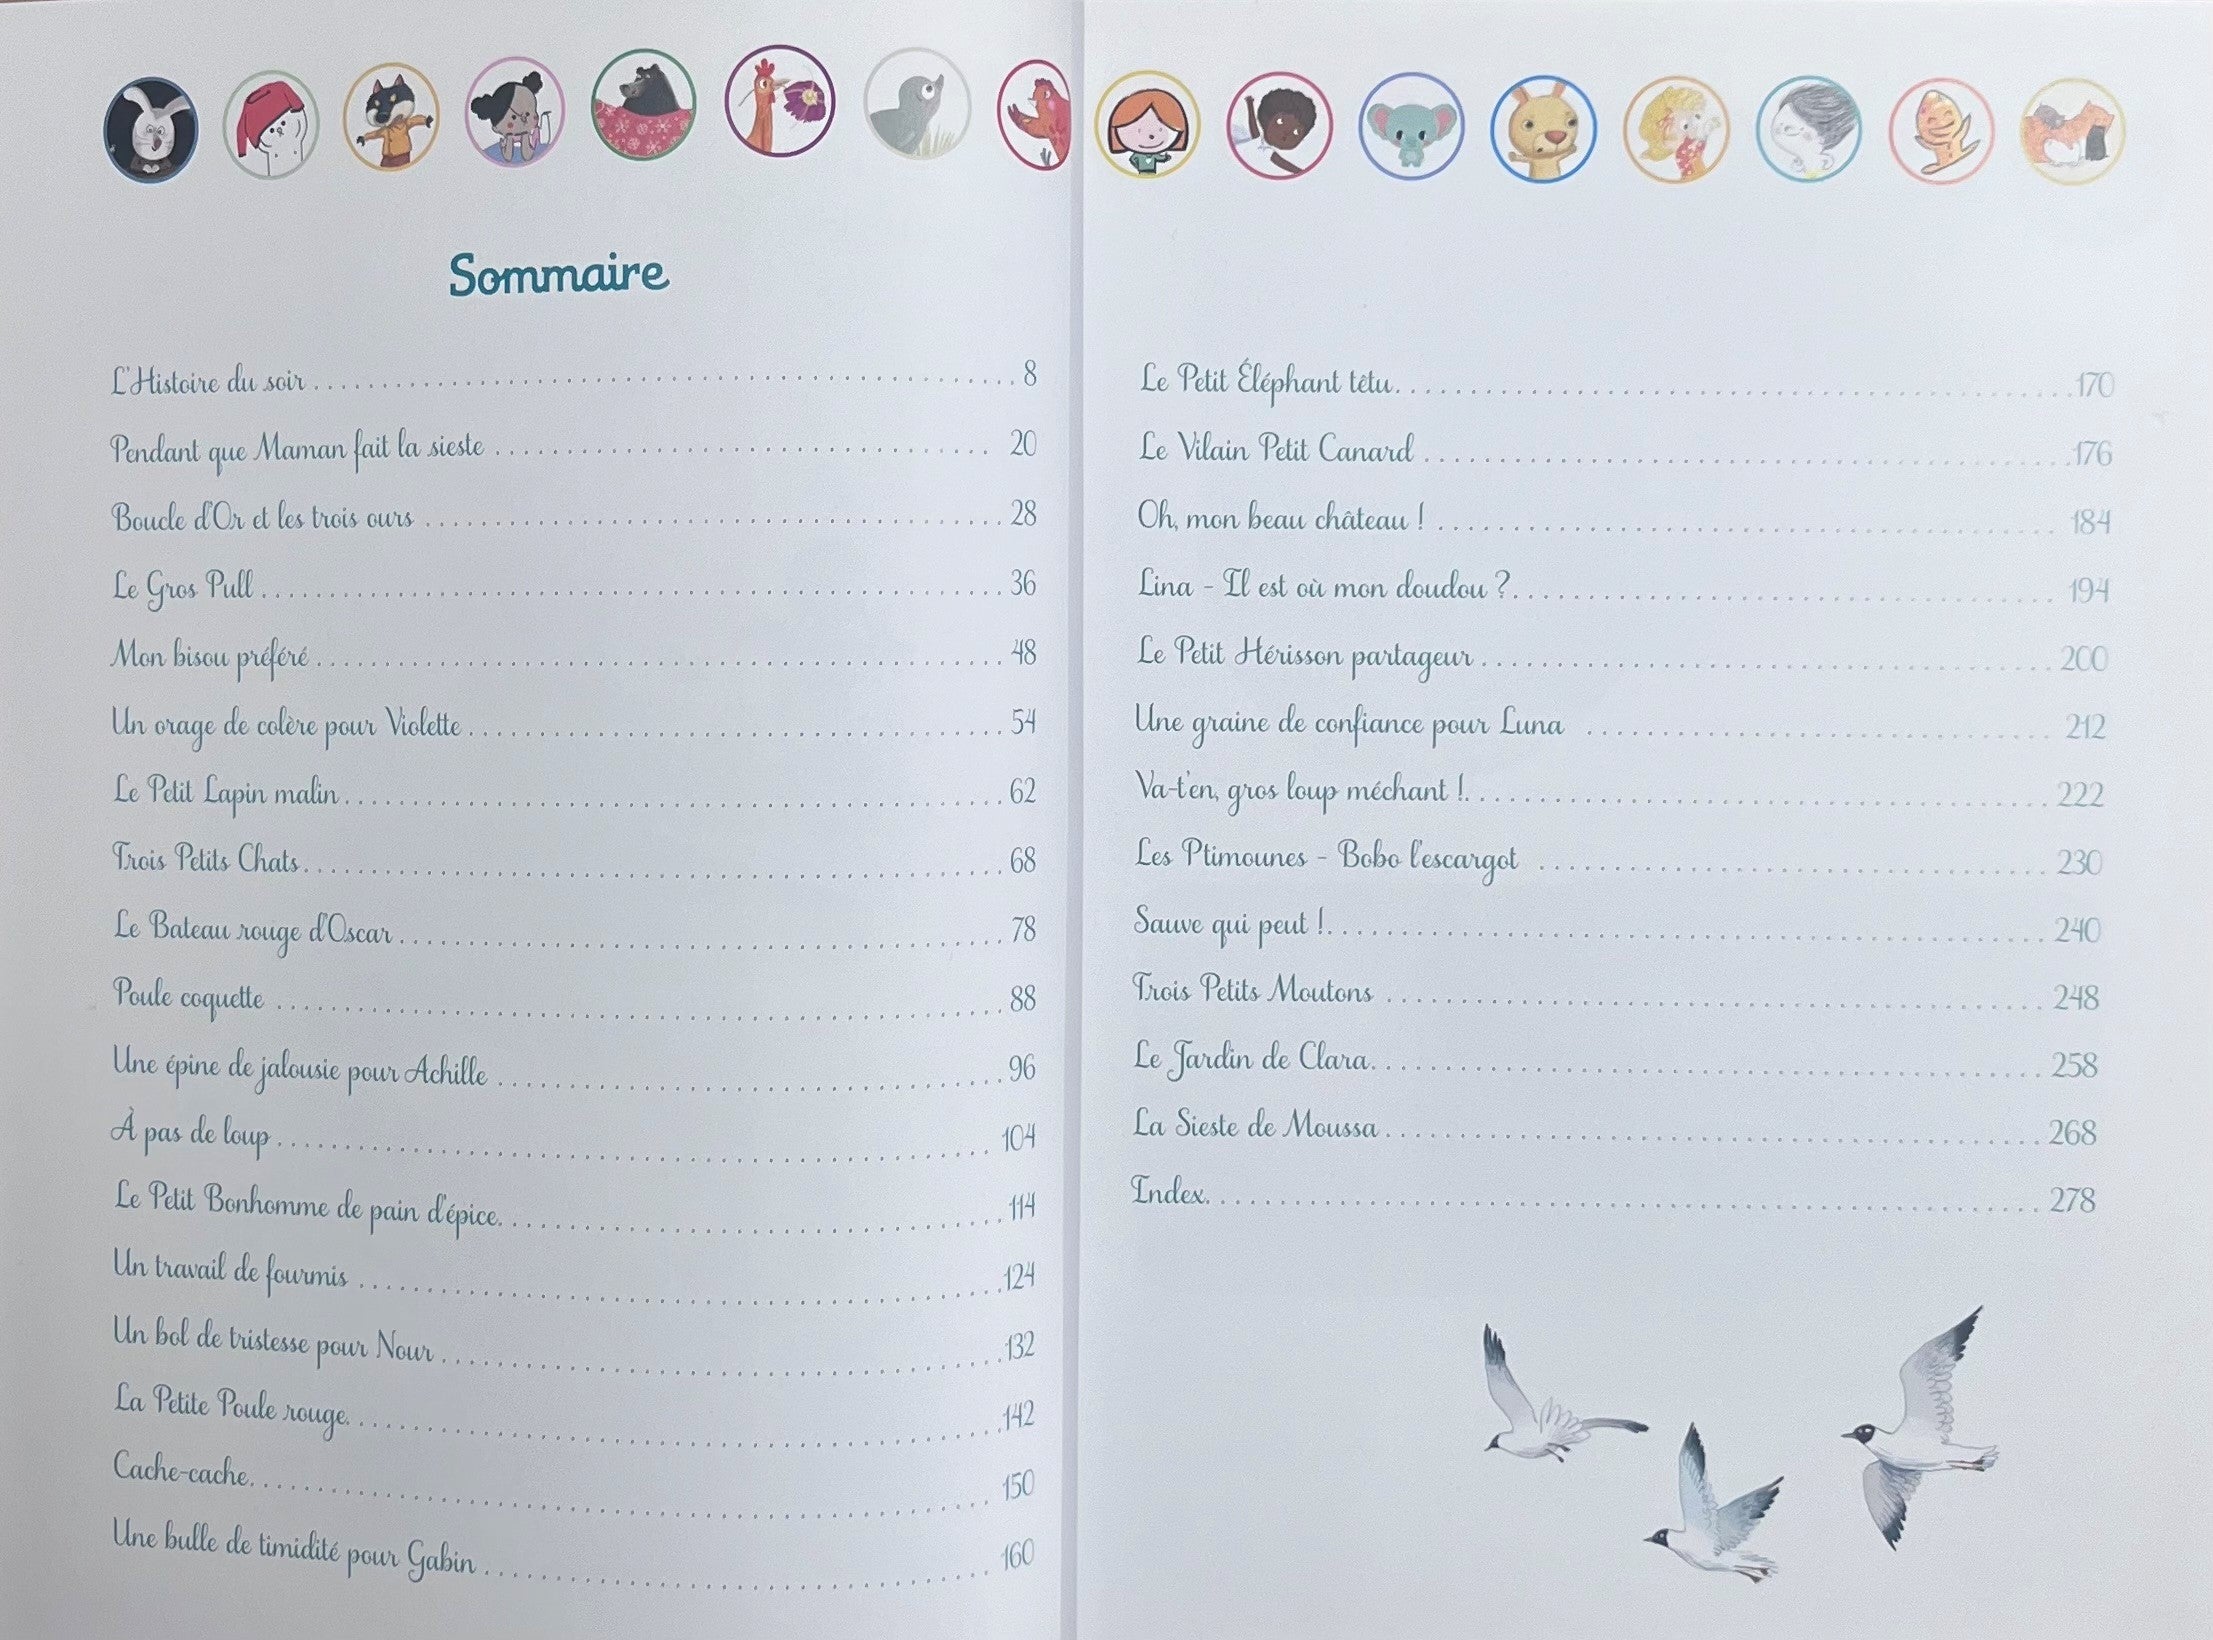 Sommaire
L'Histoire du soir 8
Pendant que Maman fait la sieste 20
Boucle d'Or et les trois ours 28
Le Gros Pull 36
Mon bisou préféré 48
Un orage de colère pour Violette 54
Le Petit Lapin malin 62
Trois Petits Chats 68
Le Bateau rouge d'Oscar 78
Poule coquette 88
Une épine de jalousie pour Achille 96
À pas de loup 104
Le Petit Bonhomme de pain d'épice 114
Un travail de fourmis 124
Un bol de tristesse pour Nour 132
La Petite Poule rouge 142
Cache-cache 150
Une bulle de timidité pour Gabin 160
Le Petit Éléphant têtu 170
Le Vilain Petit Canard 176
Oh, mon beau château ! 184
Lina - Il est où mon doudou ? 194
Le Petit Hérisson partageur 200
Une graine de confiance pour Luna 212
Va-t'en, gros loup méchant ! 222
Les Ptimounes - Bobo l'escargot 230
Sauve qui peut ! 240
Trois Petits Moutons 248
Le Jardin de Clara 258
La Sieste de Moussa 268
Index 278